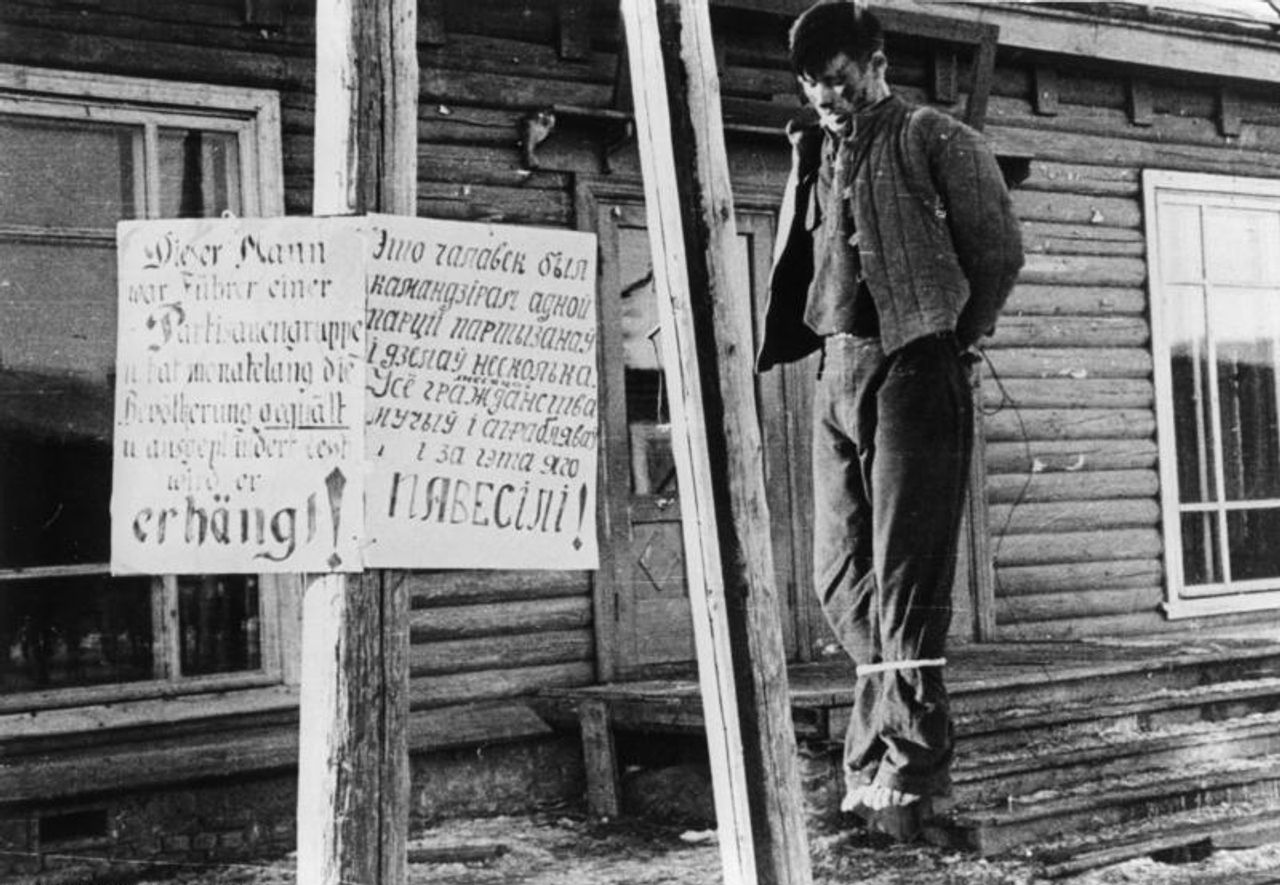 Dieser Mann
war Führer einer
Partisanengruppe
u hat monatelang die
Bevölkerung gequält
u ausgeplündert test
wird er
erhängt!
Это чалавек был
камандзірам адной
парціі партызанаў
і дзелаў несколька.
месяцоў
Усё гражданства
мучыў і аграбляваў
і за гэта яго
ПАВЕСІЛІ!